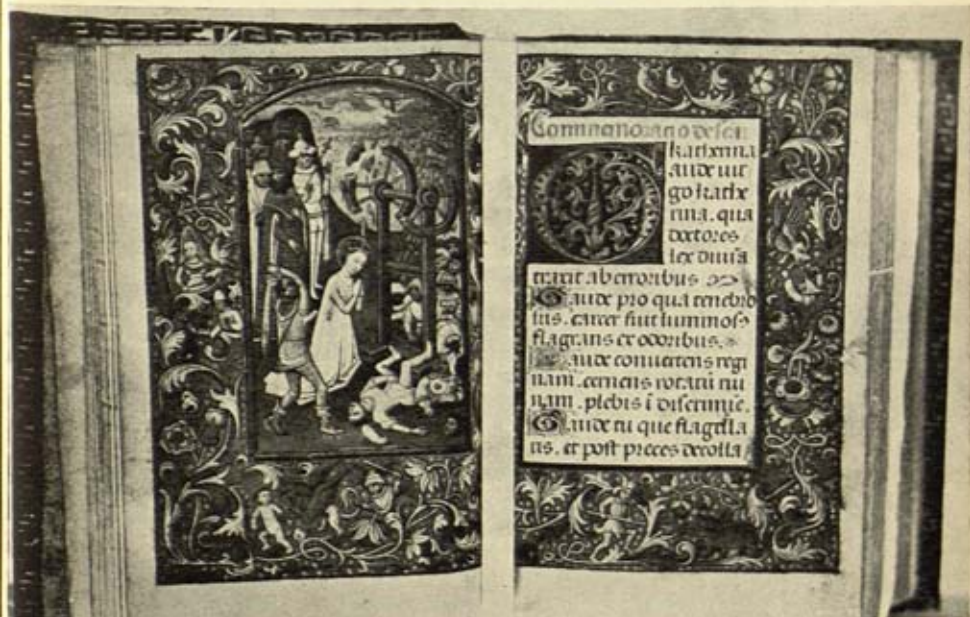 Commemoracio de sca
katherina
aude uir
go kathe
rina. qua
doctores
lex diuīa
traxit ab erroribus
Gaude pro qua tenebro
sus. carcer fuit luminosꝯ
flagrans et odoribus.
Gaude conuertens regi
nam. cernens rotarū rui
nam. plebis ī discrimīe.
Gaude tu que flagella
tis. et post preces decolla